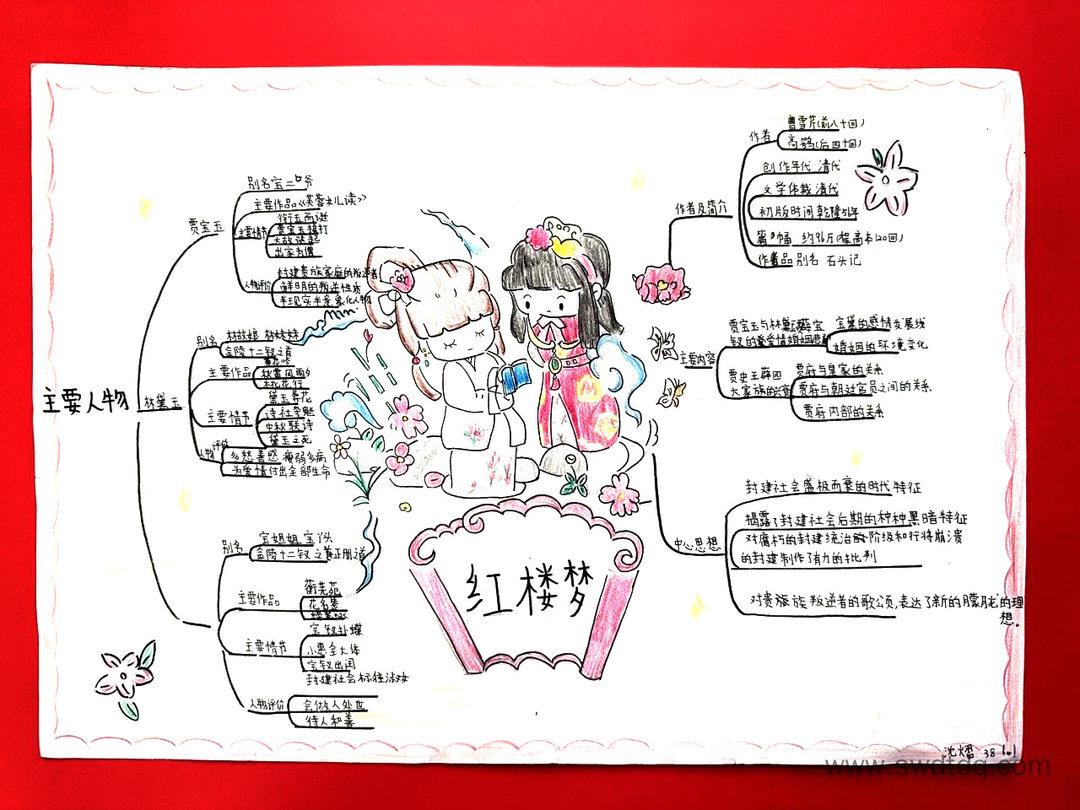 主要人物
贾宝玉
别名宝二爷
主要作品《芙蓉女儿读》
主要情节
衔玉而诞
贾宝玉挨打
出家为僧
人物评价
封建贵族家庭的叛逆者
鲜明的叛逆性质
林黛玉
别名
林姑娘 林妹妹
金陵十二钗之首
主要作品
桃花行
主要情节
黛玉葬花
诗社夺魁
中秋联诗
黛玉之死
人物评价
多愁善感 瘦弱多病
为爱情付出全部生命
别名
宝姐姐 宝丫头
主要作品
蘅芜苑
主要情节
宝钗扑蝶
小惠全大体
宝钗出闺
人物评价
会做人处世
待人和善
红楼梦
作者及简介
作者
曹雪芹(前八十回)
高鹗(后四十回)
创作年代 清代
文学体裁 清代
初版时间 乾隆51年
作品 别名 石头记
主要内容
宝黛的感情发展线
婚姻的环境变化
贾史王薛四
贾府与皇家的关系
贾府与朝廷官员之间的关系
贾府内部的关系
中心思想
封建社会盛极而衰的时代特征
揭露了封建社会后期的种种黑暗特征
对腐朽的封建统治阶级和行将崩溃
的封建制作了有力的批判
对贵族叛逆者的歌颂,表达了新的朦胧的理
想。
38
www.swdtdq.com